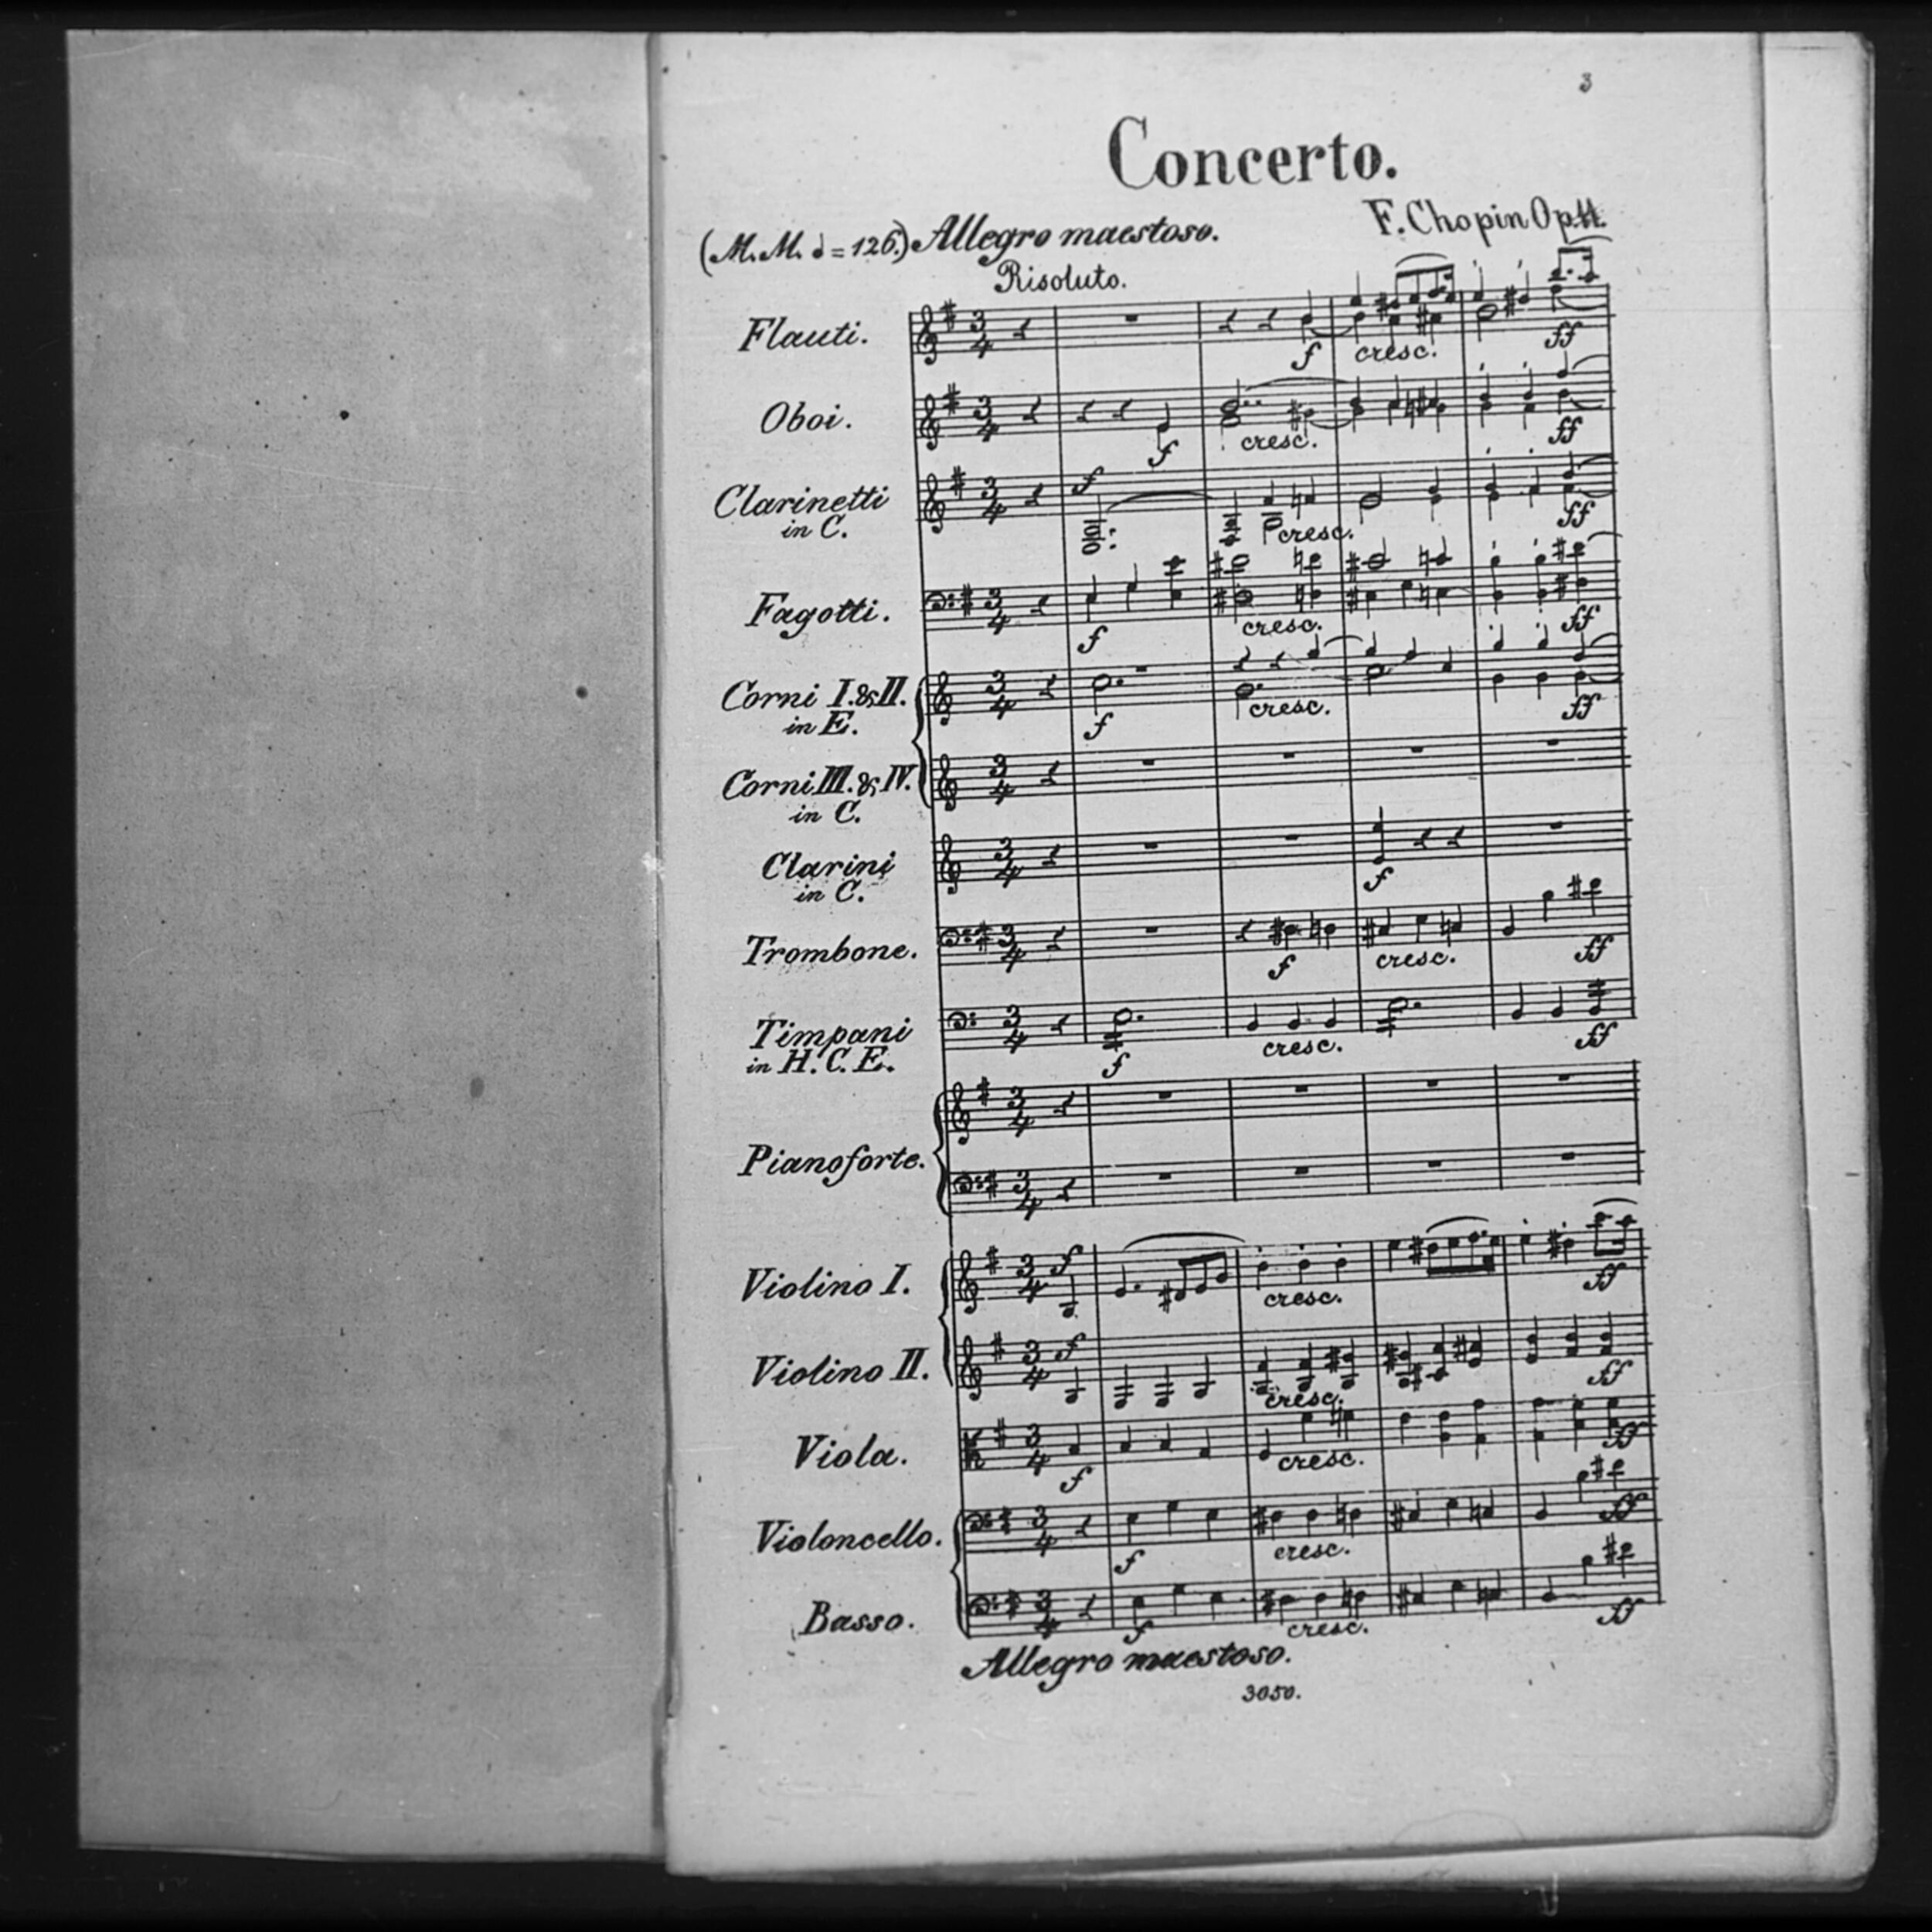 3
Concerto.
F. Chopin Op.11.
(M.M. 𝅗𝅥 = 126.) Allegro maestoso.
Risoluto.
Flauti. 3/4 f cresc. ff
Oboi. 3/4 f cresc. ff
Clarinetti in C. 3/4 f cresc. ff
Fagotti. 3/4 f cresc. ff
Corni I. & II. in E. 3/4 f cresc. ff
Corni III. & IV. in C. 3/4
Clarini in C. 3/4 f
Trombone. 3/4 f cresc. ff
Timpani in H. C. E. 3/4 f cresc. ff
Pianoforte. 3/4 3/4
Violino I. 3/4 f cresc. ff
Violino II. 3/4 f cresc. ff
Viola. 3/4 f cresc. ff
Violoncello. 3/4 f cresc. ff
Basso. 3/4 f cresc. ff
Allegro maestoso.
3050.